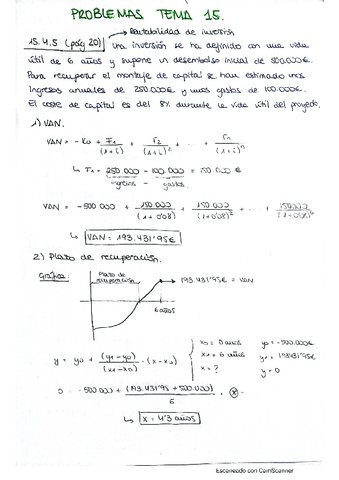 PROBLEMAS TEMA 15.
→ Rentabilidad de inversión
15.4.5 (pág 20) Una inversión se ha definido con una vida
útil de 6 años y supone un desembolso inicial de 500.000€
Para recuperar el montaje de capital se han estimado unos
ingresos anuales de 250.000€ y unos gastos de 100.000€.
El coste de capital es del 8% durante la vida útil del proyecto.
1) VAN.
VAN = - K0 + F1/(1+i) + F2/(1+i)² + ... + Fn/(1+i)ⁿ
↳ F1 = 250.000 - 100.000 = 150.000€
ingresos - gastos.
VAN = -500000 + 150.000/(1+0'08) + 150.000/(1+0'08)² + ... + 150.000/(1+0'08)⁶
↳ VAN = 193.431'95€
2) Plazo de recuperación.
Gráfica:
Plazo de
recuperación
→ 193.431'95€ = VAN
6 años
x0 = 0 años y0 = -500.000€
y = y0 + (y1-y0)/(x1-x0) · (x-x0)
x1 = 6 años y1 = 193431'95€
x = ? y = 0
0 = -500000 + (193.431'95 + 500.000)/6 · x
↳ x = 4'3 años
Escaneado con CamScanner